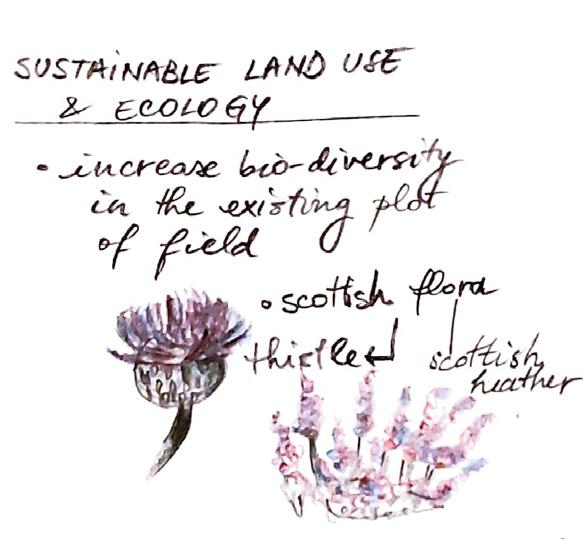 SUSTAINABLE LAND USE
& ECOLOGY
• increase bio-diversity
in the existing plot
of field
• scottish flora
thistle
scottish
heather